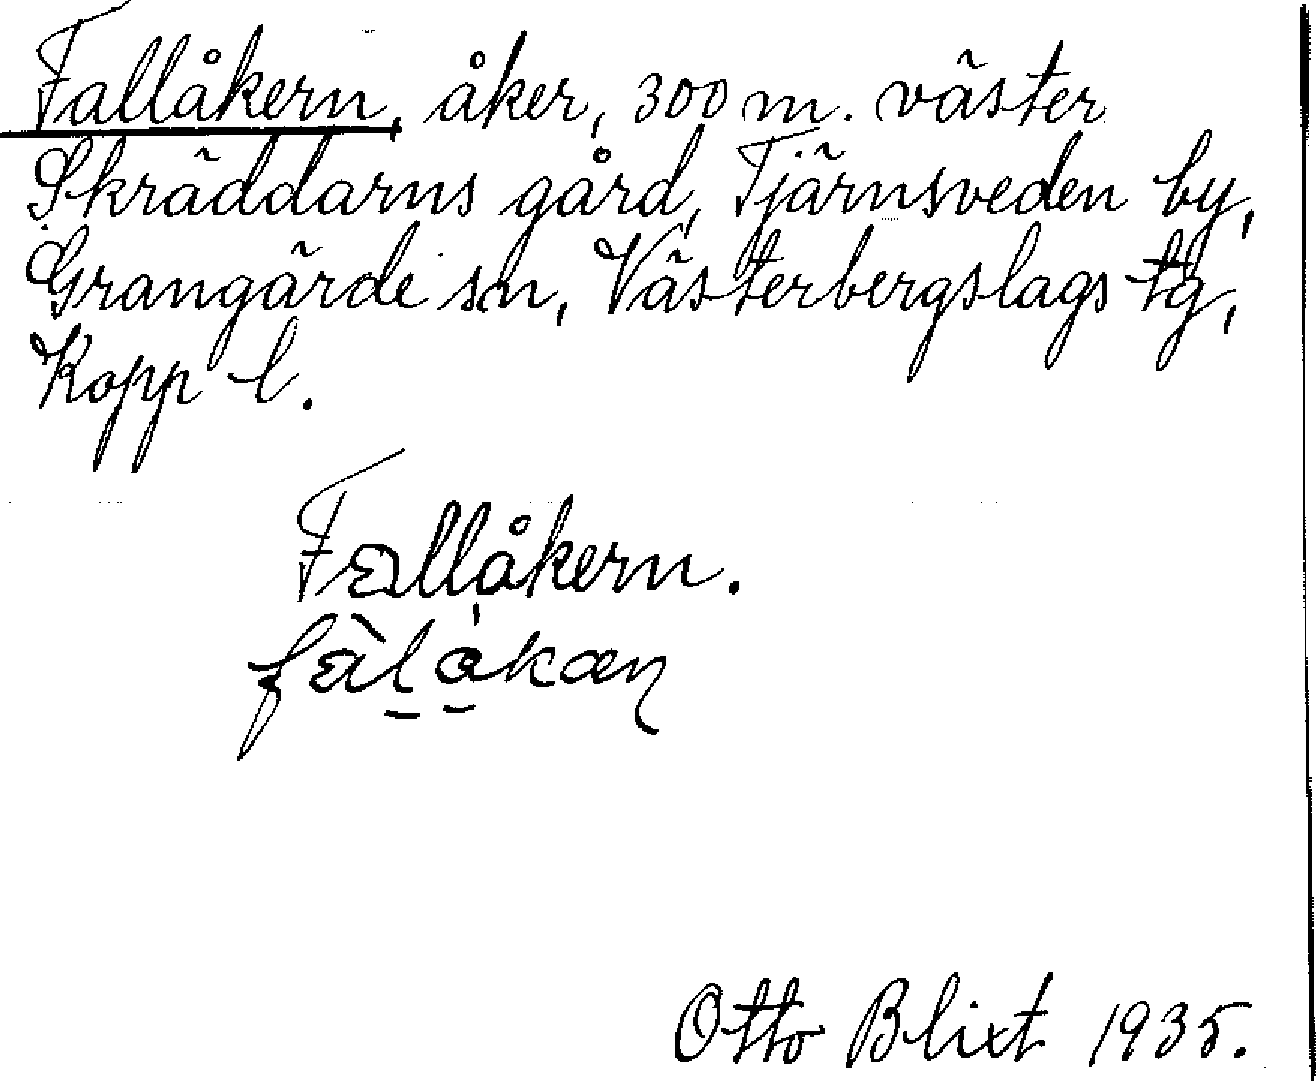 Fallåkern, åker, 300 m. väster
Skräddarns gård, Tjärnsveden by,
Grangärde sn, Västerbergslags tg,
Kopp l.
Fallåkern.
Otto Blixt 1935.